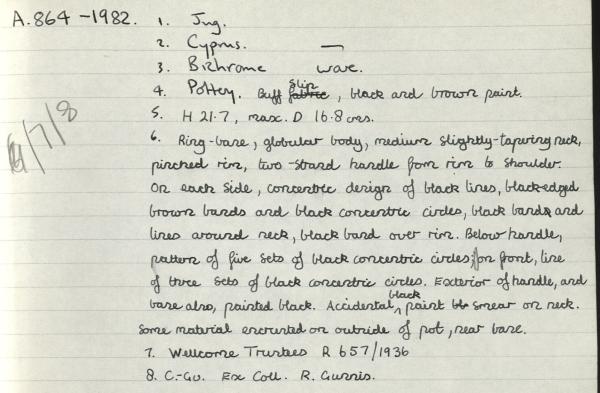 A.864-1982. 1. Jug.
2. Cyprus. —
3. Bichrome ware.
4. Pottery. Buff fabric slip, black and brown paint.
5. H 21.7, max. D 16.8 cms.
6. Ring-base, globular body, medium slightly-tapering neck,
pinched rim, two-strand handle from rim to shoulder.
On each side, concentric design of black lines, black-edged
brown bands and black concentric circles, black bands and
lines around neck, black band over rim. Below handle,
pattern of five sets of black concentric circles; on front, line
of three sets of black concentric circles. Exterior of handle, and
base also, painted black. Accidental black paint smear on neck.
Some material encrusted on outside of pot, near base.
7. Wellcome Trustees R 657/1936
8. C.-Gu. Ex Coll. R. Gunnis.
/7/8